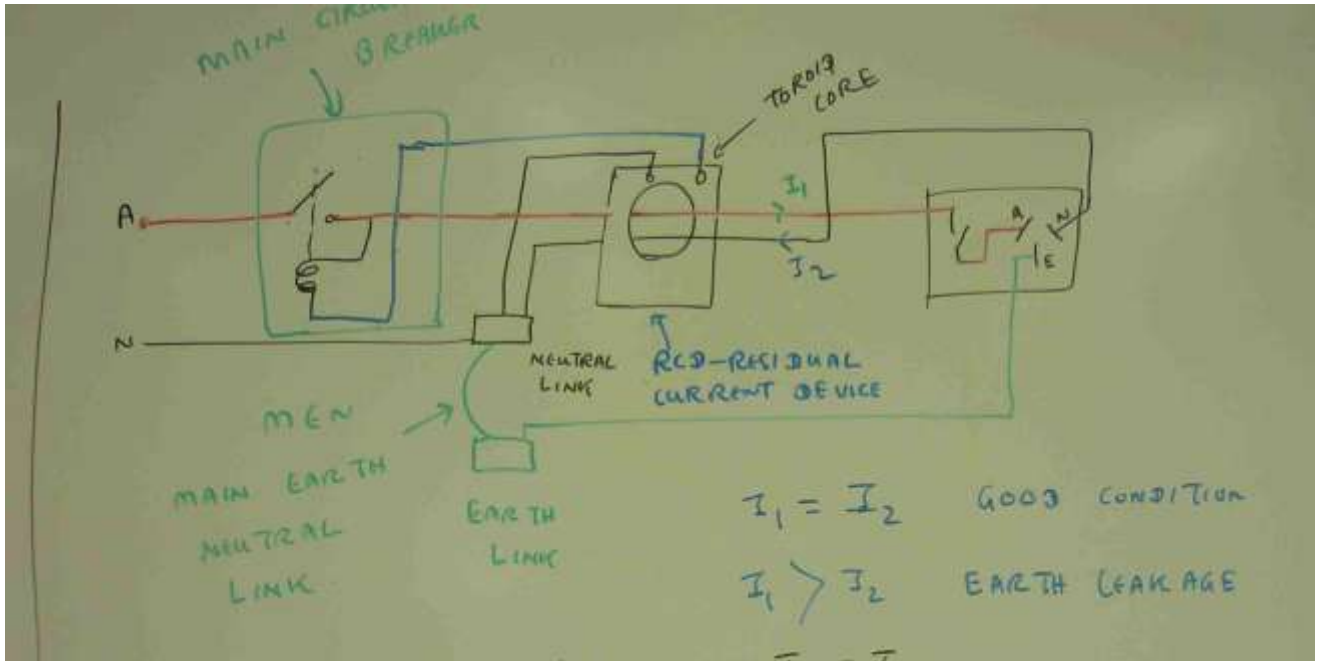 MAIN CIRCUIT
BREAKER
TOROID
CORE
A
I1
I2
A
N
E
N
NEUTRAL
LINK
RCD-RESIDUAL
CURRENT DEVICE
MEN
MAIN EARTH
NEUTRAL
LINK
EARTH
LINK
I1 = I2 GOOD CONDITION
I1 > I2 EARTH LEAKAGE